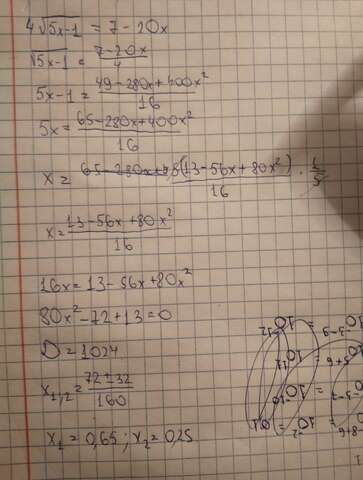 4√5x-1 = 7-20x
√5x-1 = 7-20x/4
5x-1 = 49-280x+400x²/16
5x = 65-280x+400x²/16
x = 5(13-56x+80x²)/16 · 1/5
x = 13-56x+80x²/16
16x = 13-56x+80x²
80x²-72+13=0
D=1024
x₁,₂ = 72±32/160
x₁ = 0,65; x₂ = 0,25